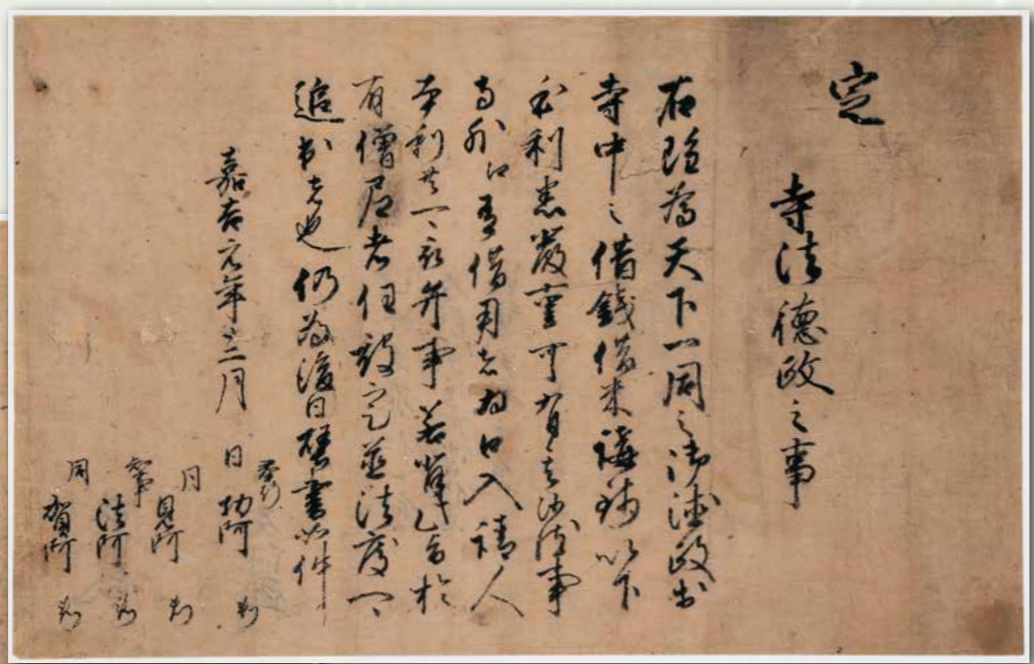 定
寺法徳政之事
右雖為天下一同之御徳政出
寺中之借銭借米講銭以下
本利悉厳重可有其沙汰事
寺外江有借用者為口入請人
本利共可致弁事若背此旨於
有僧尼者任評定並法度可
追出者也仍為後日壁書如件
嘉吉元年十二月 日 功阿 判
同 見阿 判
法阿 判
同 賀阿 判